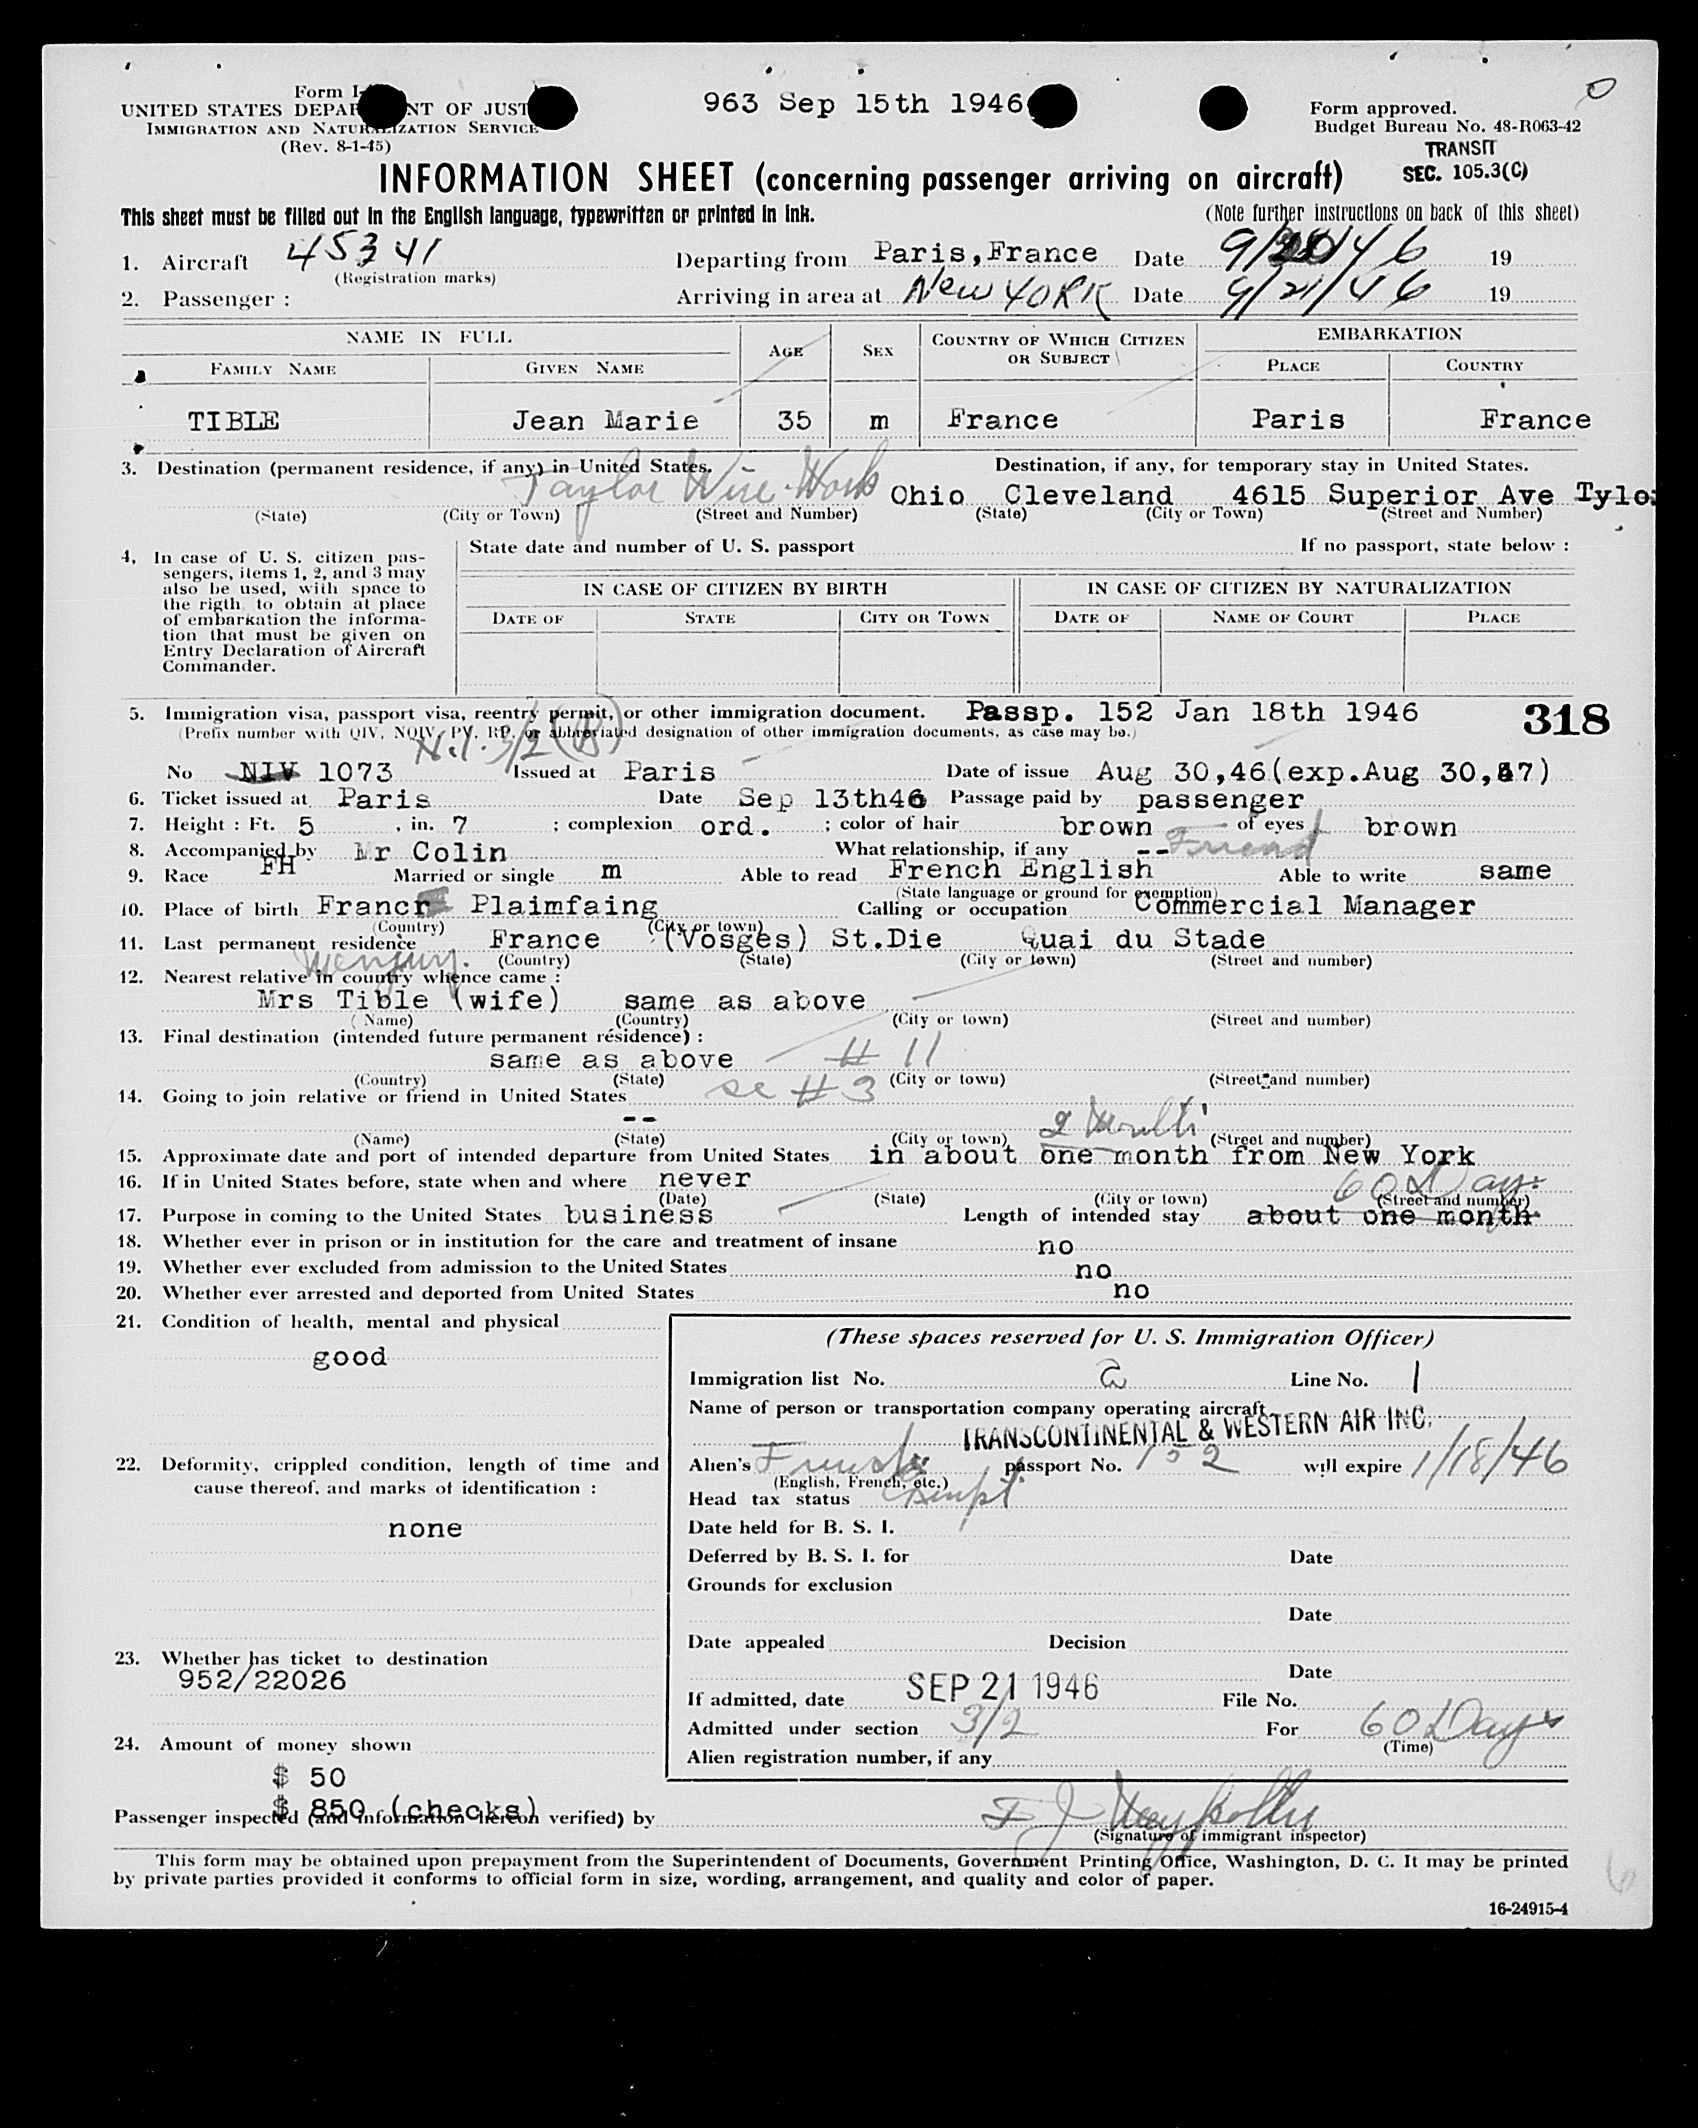 Form I-
963 Sep 15th 1946
Form approved.
UNITED STATES DEPAR NT OF JUST
Budget Bureau No. 48-R063-42
IMMIGRATION AND NATURALIZATION SERVICE
(Rev. 8-1-45)
TRANSIT
SEC. 105.3(C)
INFORMATION SHEET (concerning passenger arriving on aircraft)
This sheet must be filled out in the English language, typewritten or printed in ink.
(Note further instructions on back of this sheet)
1. Aircraft 45341 Departing from Paris,France Date 9/20/46 19
(Registration marks)
2. Passenger : Arriving in area at New YORK Date 9/21/46 19
NAME IN FULL AGE SEX COUNTRY OF WHICH CITIZEN OR SUBJECT EMBARKATION
FAMILY NAME GIVEN NAME PLACE COUNTRY
TIBLE Jean Marie 35 m France Paris France
3. Destination (permanent residence, if any) in United States. Destination, if any, for temporary stay in United States.
Taylor Wire Work Ohio Cleveland 4615 Superior Ave Tylo
(State) (City or Town) (Street and Number) (State) (City or Town) (Street and Number)
4. In case of U. S. citizen pas-
sengers, items 1, 2, and 3 may
also be used, with space to
the rigth to obtain at place
of embarkation the informa-
tion that must be given on
Entry Declaration of Aircraft
Commander.
State date and number of U. S. passport If no passport, state below :
IN CASE OF CITIZEN BY BIRTH IN CASE OF CITIZEN BY NATURALIZATION
DATE OF STATE CITY OR TOWN DATE OF NAME OF COURT PLACE
5. Immigration visa, passport visa, reentry permit, or other immigration document. Passp. 152 Jan 18th 1946 318
(Prefix number with QIV, NQIV, PV, RP, or abbreviated designation of other immigration documents, as case may be.)
3/2 (B)
No NIV 1073 Issued at Paris Date of issue Aug 30,46(exp.Aug 30,47)
6. Ticket issued at Paris Date Sep 13th46 Passage paid by passenger
7. Height : Ft. 5 , in. 7 ; complexion ord. ; color of hair brown of eyes brown
8. Accompanied by Mr Colin What relationship, if any -- Friend
9. Race FH Married or single m Able to read French English Able to write same
(State language or ground for exemption)
10. Place of birth Francr Plaimfaing Calling or occupation Commercial Manager
(Country) (City or town)
11. Last permanent residence France (Vosges) St.Die Quai du Stade
(Country) (State) (City or town) (Street and number)
12. Nearest relative in country whence came :
Mrs Tible (wife) same as above
(Name) (Country) (City or town) (Street and number)
13. Final destination (intended future permanent résidence) :
same as above # 11
(Country) (State) (City or town) (Street and number)
14. Going to join relative or friend in United States see # 3
--
(Name) (State) (City or town) (Street and number)
2 Months
15. Approximate date and port of intended departure from United States in about one month from New York
16. If in United States before, state when and where never
(Date) (State) (City or town) (Street and number)
60 Days
17. Purpose in coming to the United States business Length of intended stay about one month
18. Whether ever in prison or in institution for the care and treatment of insane no
19. Whether ever excluded from admission to the United States no
20. Whether ever arrested and deported from United States no
21. Condition of health, mental and physical
good
22. Deformity, crippled condition, length of time and
cause thereof, and marks of identification :
none
23. Whether has ticket to destination
952/22026
24. Amount of money shown
$ 50
$ 850 (checks)
(These spaces reserved for U. S. Immigration Officer)
Immigration list No. 2 Line No. 1
Name of person or transportation company operating aircraft
TRANSCONTINENTAL & WESTERN AIR INC.
Alien's French passport No. 152 will expire 1/18/46
(English, French, etc.)
Head tax status Exempt
Date held for B. S. I.
Deferred by B. S. I. for Date
Grounds for exclusion
Date
Date appealed Decision
Date
If admitted, date SEP 21 1946 File No.
Admitted under section 3/2 For 60 Days
(Time)
Alien registration number, if any
Passenger inspected (and information hereon verified) by
(Signature of immigrant inspector)
This form may be obtained upon prepayment from the Superintendent of Documents, Government Printing Office, Washington, D. C. It may be printed
by private parties provided it conforms to official form in size, wording, arrangement, and quality and color of paper.
16-24915-4